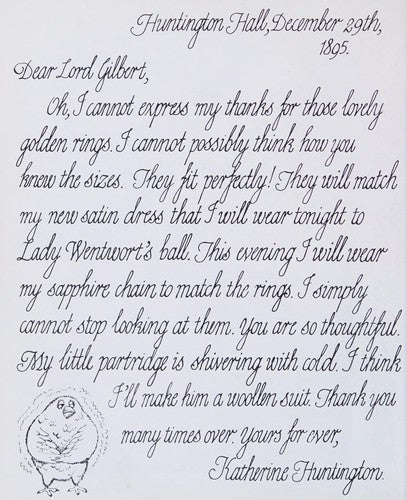 Huntington Hall, December 29th,
1895.
Dear Lord Gilbert,
Oh, I cannot express my thanks for those lovely
golden rings. I cannot possibly think how you
knew the sizes. They fit perfectly! They will match
my new satin dress that I will wear tonight to
Lady Wentwort's ball. This evening I will wear
my sapphire chain to match the rings. I simply
cannot stop looking at them. You are so thoughtful.
My little partridge is shivering with cold. I think
I'll make him a woollen suit. Thank you
many times over. Yours for ever,
Katherine Huntington.